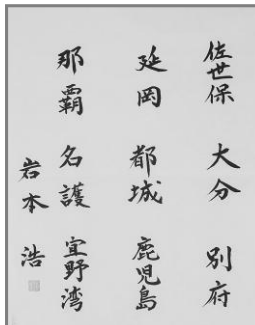 佐世保 大分 別府
延岡 都城 鹿児島
那覇 名護 宜野湾
岩本 浩